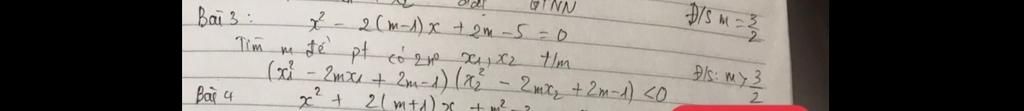 GTNN
Đ/S m = 3/2
Bài 3 : x² - 2(m-1)x + 2m - 5 = 0
Tìm m để pt có 2 n⁰ x₁, x₂ t/m
(x₁² - 2mx₁ + 2m - 1)(x₂² - 2mx₂ + 2m - 1) < 0
Đ/S: m > 3/2
Bài 4 x² + 2(m+1)x + m²